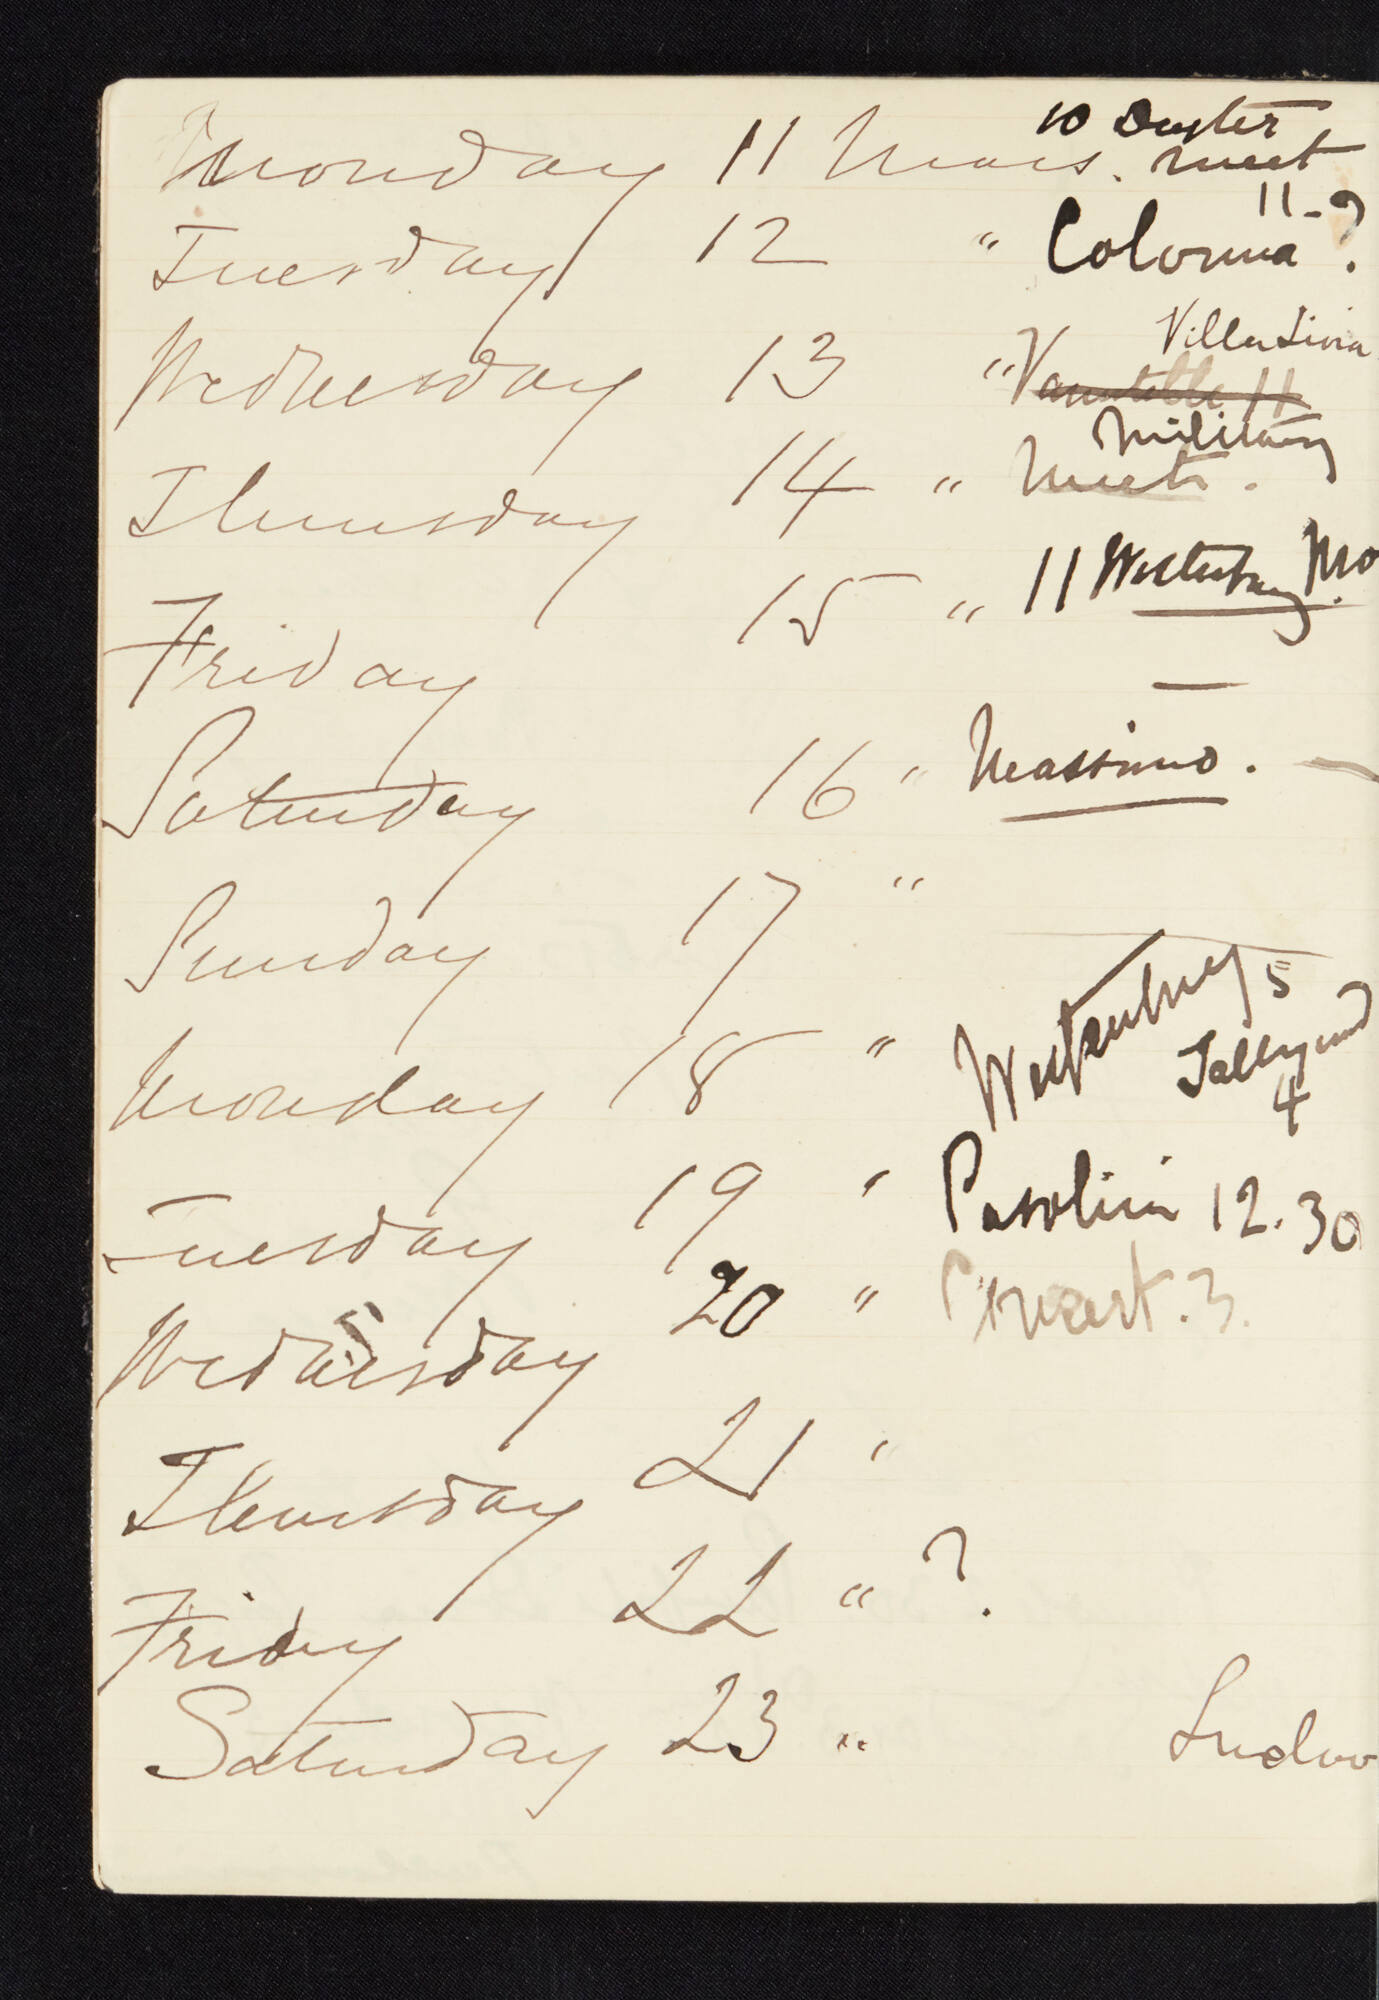 Monday 11 Mars. 10 Duster meet
11-?
Tuesday 12 " Colonna ?
Villa Livia
Wednesday 13 " Vanutelli 11
Military
Thursday 14 " Meet.
Friday 15 " 11 Westenberg Mo
Saturday 16 " Massimo.
Sunday 17 "
Monday 18 " Westenberg 5
Talleyrand
4
Tuesday 19 " Pasolini 12.30
Wednesday 20 " Concert. 3.
Thursday 21 "
Friday 22 " ?.
Saturday 23 " Ludov